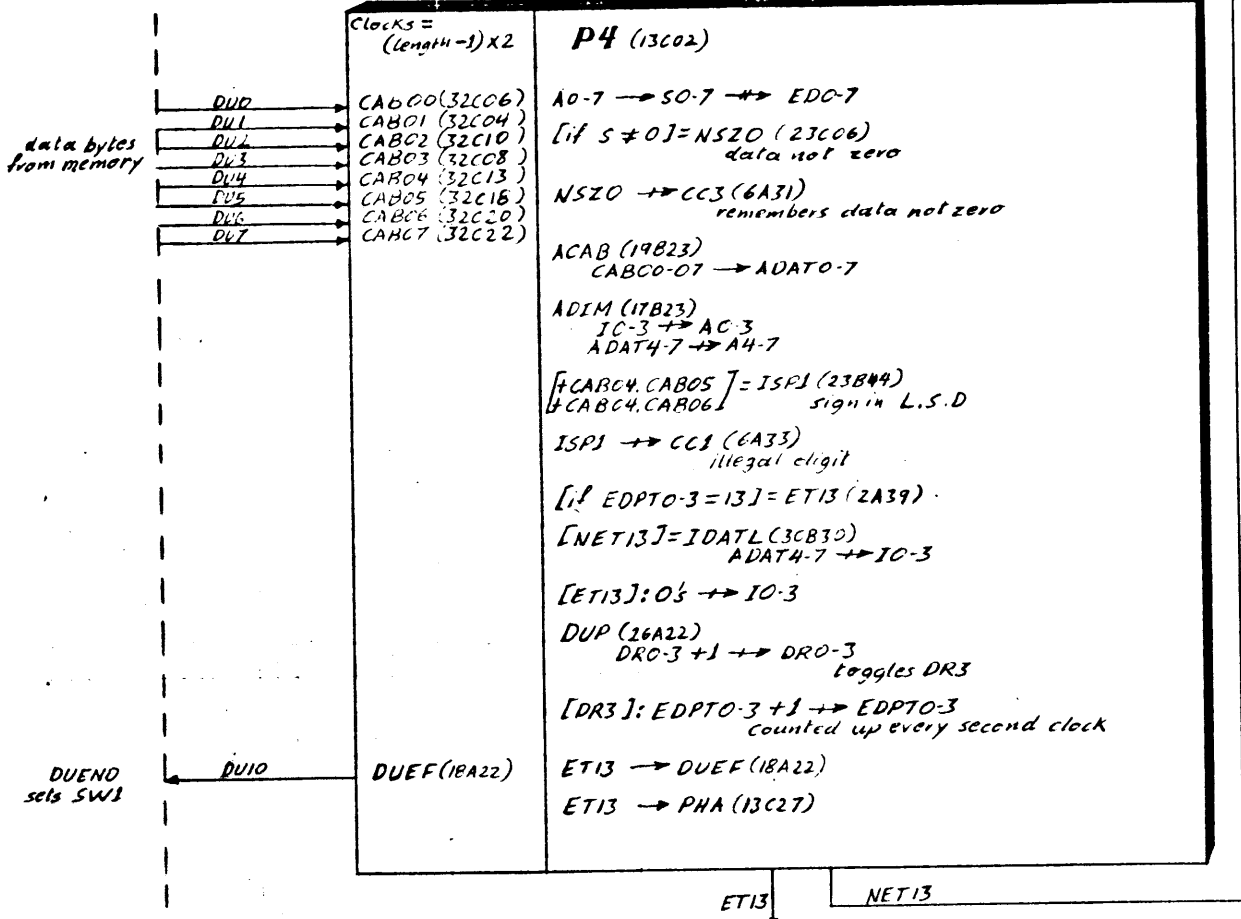 Clocks =
(length-1)X2
P4 (13C02)
data bytes
from memory
DU0
DU1
DU2
DU3
DU4
DU5
DU6
DU7
CAB00(32C06)
CAB01 (32C04)
CAB02 (32C10)
CAB03 (32C08)
CAB04 (32C13)
CAB05 (32C18)
CAB06 (32C20)
CAB07 (32C22)
A0-7 → S0-7 ⇸ ED0-7
[if S ≠ 0]=NSZ0 (23C06)
data not zero
NSZ0 ⇸ CC3 (6A31)
remembers data not zero
ACAB (19B23)
CAB00-07 → ADAT0-7
ADIM (17B23)
I0-3 ⇸ A0-3
ADAT4-7 ⇸ A4-7
[+CAB04.CAB05
+CAB04.CAB06]=ISP1 (23B44)
sign in L.S.D
ISP1 ⇸ CC1 (6A33)
illegal digit
[if EDPT0-3=13]=ET13 (2A39)
[NET13]=IDATL(30B30)
ADAT4-7 ⇸ I0-3
[ET13]: 0's ⇸ I0-3
DUP (26A22)
DR0-3 +1 ⇸ DR0-3
toggles DR3
[DR3]: EDPT0-3 +1 ⇸ EDPT0-3
counted up every second clock
DUEND
sets SW1
DU10
DUEF(18A22)
ET13 → DUEF(18A22)
ET13 → PHA (13C27)
ET13
NET13